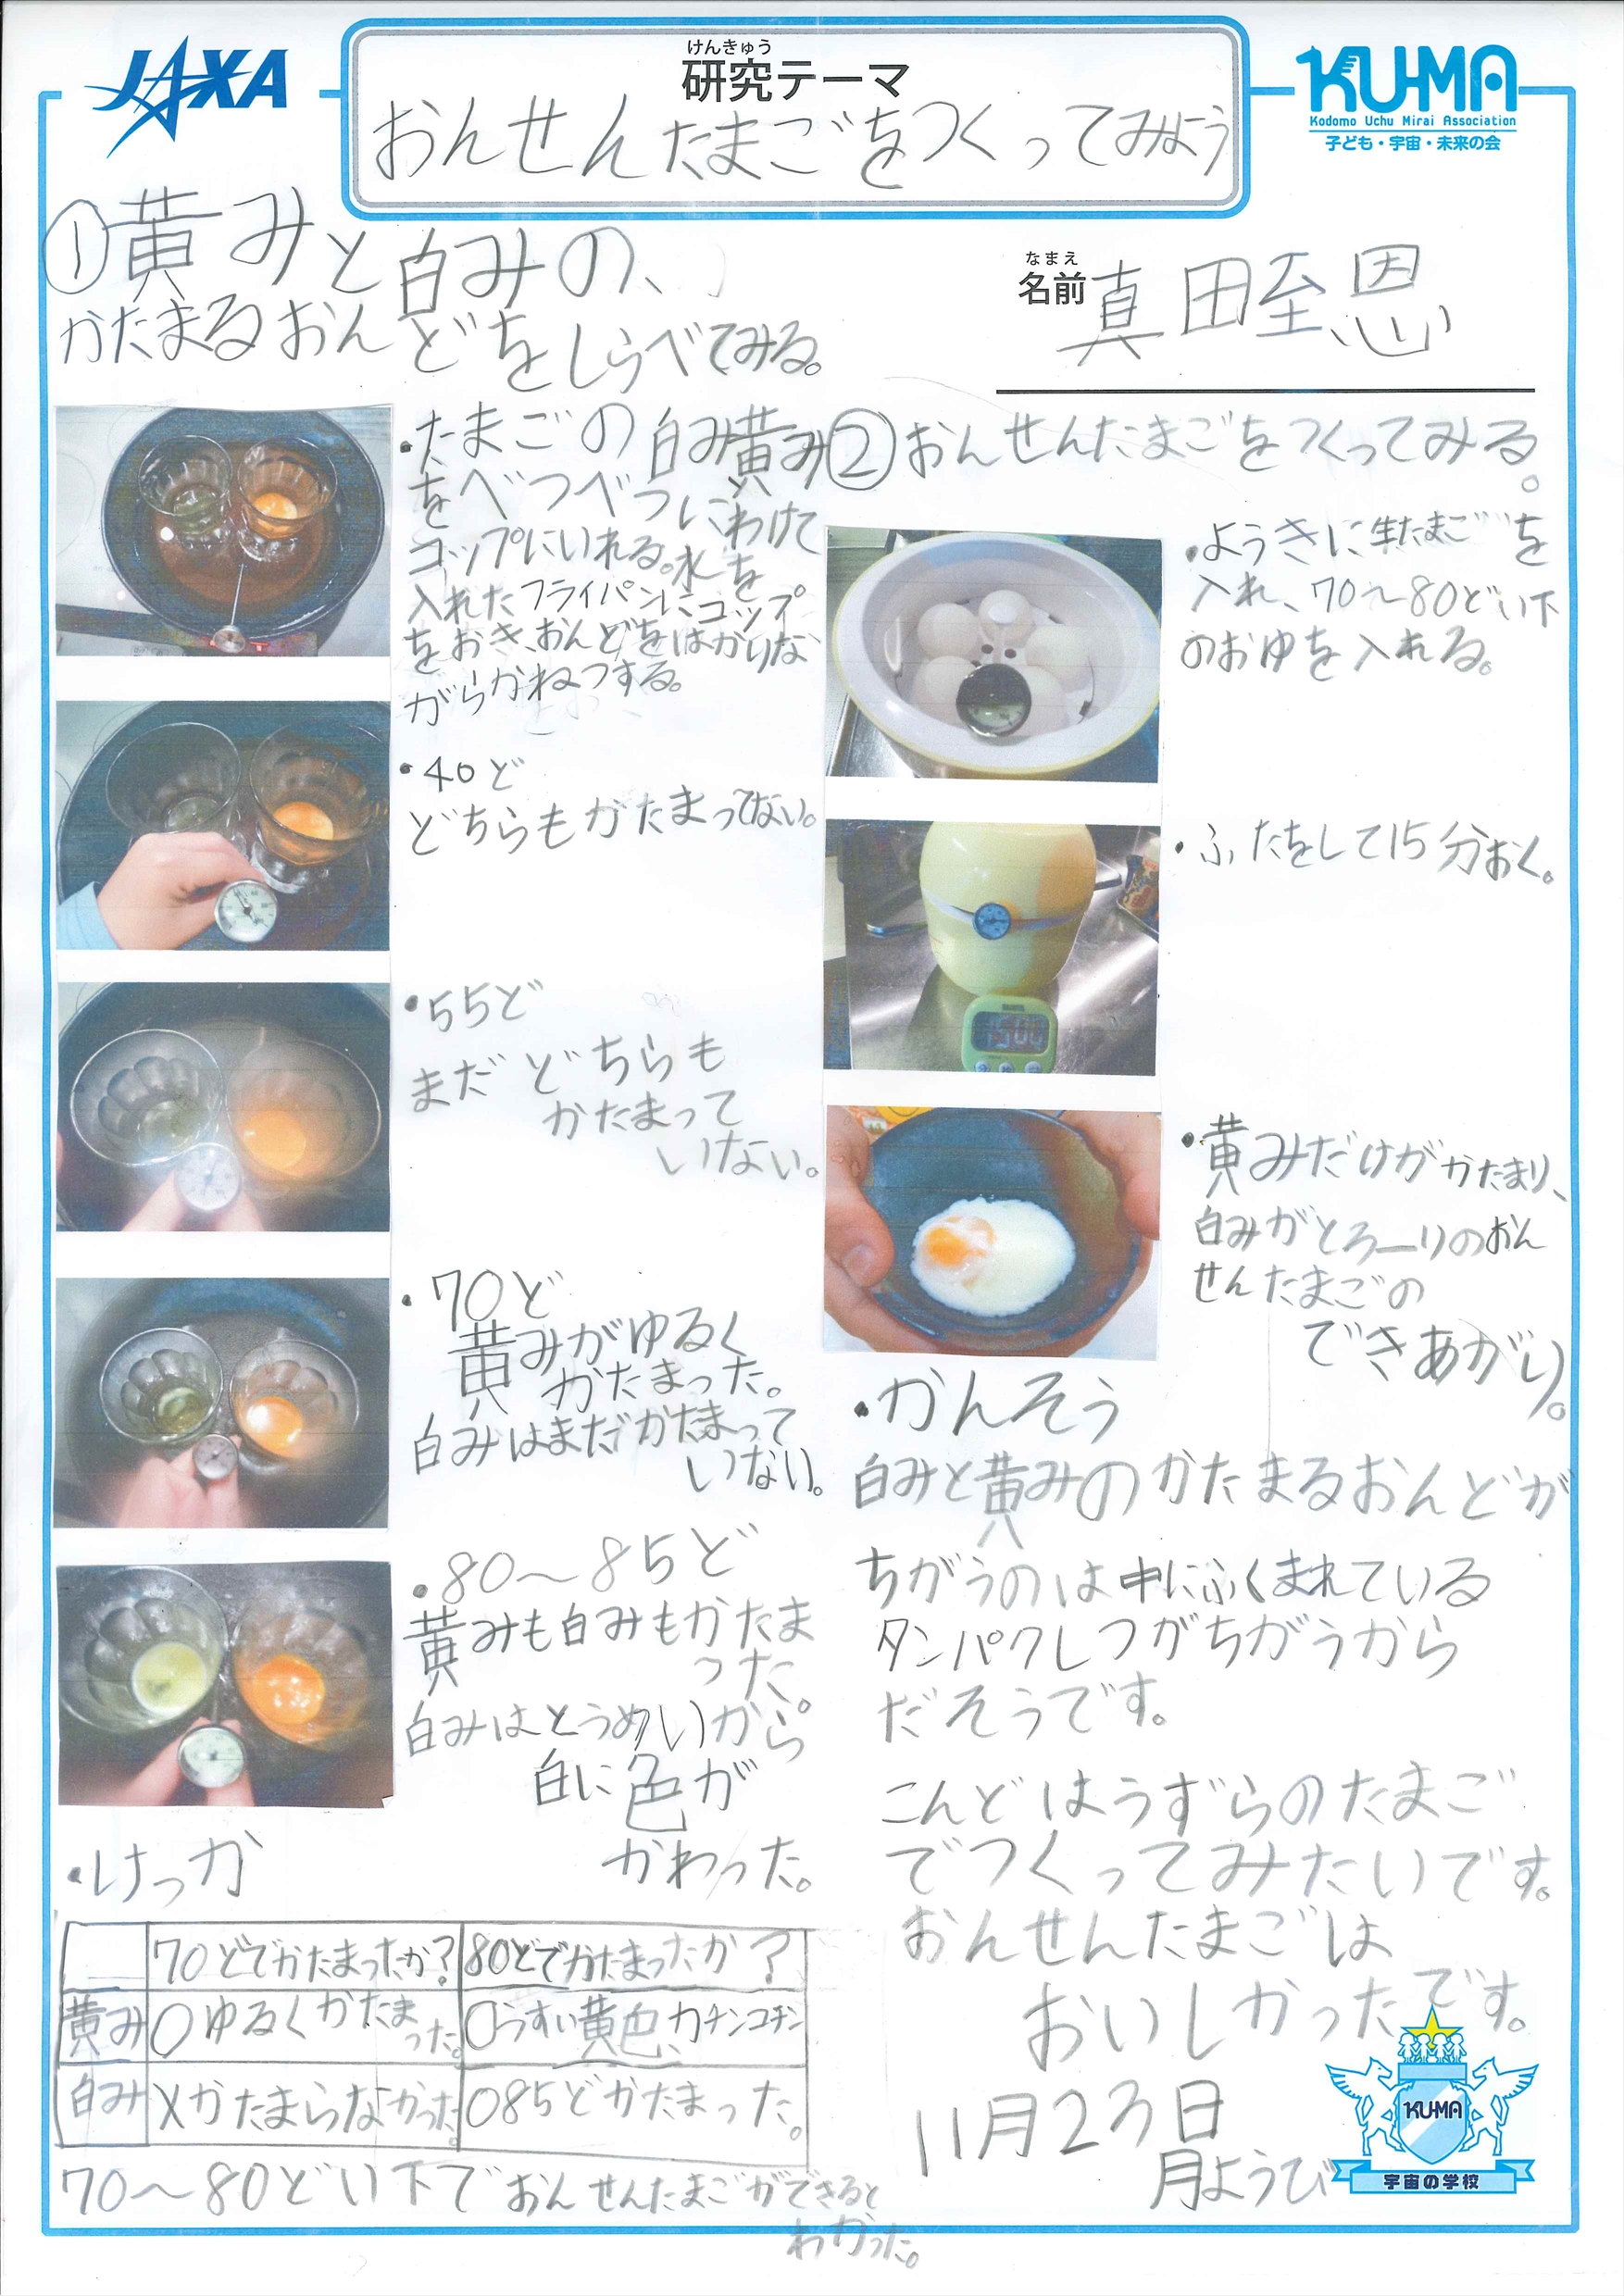 JAXA
けんきゅう
研究テーマ
おんせんたまごをつくってみよう
KU-MA
Kodomo Uchu Mirai Association
子ども・宇宙・未来の会
①黄みと白みの、
かたまるおんどをしらべてみる。
なまえ
名前 真田至恩
・たまごの白み黄み
をべつべつにわけて
コップにいれる。水を
入れたフライパンにコップ
をおき、おんどをはかりな
がらかねつする。
・40ど
どちらもかたまってない。
・55ど
まだどちらも
かたまって
いない。
・70ど
黄みがゆるく
かたまった。
白みはまだかたまって
いない。
・80〜85ど
黄みも白みもかたま
った。
白みはとうめいから
白に色が
かわった。
・けっか
70どでかたまったか? 80どでかたまったか?
黄み ○ゆるくかたまった。 ○うすい黄色、カチンコチン
白み ×かたまらなかった。 ○85どかたまった。
70〜80どい下でおんせんたまごができると
わかった。
②おんせんたまごをつくってみる。
・ようきに生たまごを
入れ、70〜80どい下
のおゆを入れる。
・ふたをして15分おく。
・黄みだけがかたまり、
白みがとろーりのおん
せんたまごの
できあがり。
・かんそう
白みと黄みのかたまるおんどが
ちがうのは中にふくまれている
タンパクしつがちがうから
だそうです。
こんどはうずらのたまご
でつくってみたいです。
おんせんたまごは
おいしかったです。
11月23日
月ようび
KU-MA
宇宙の学校